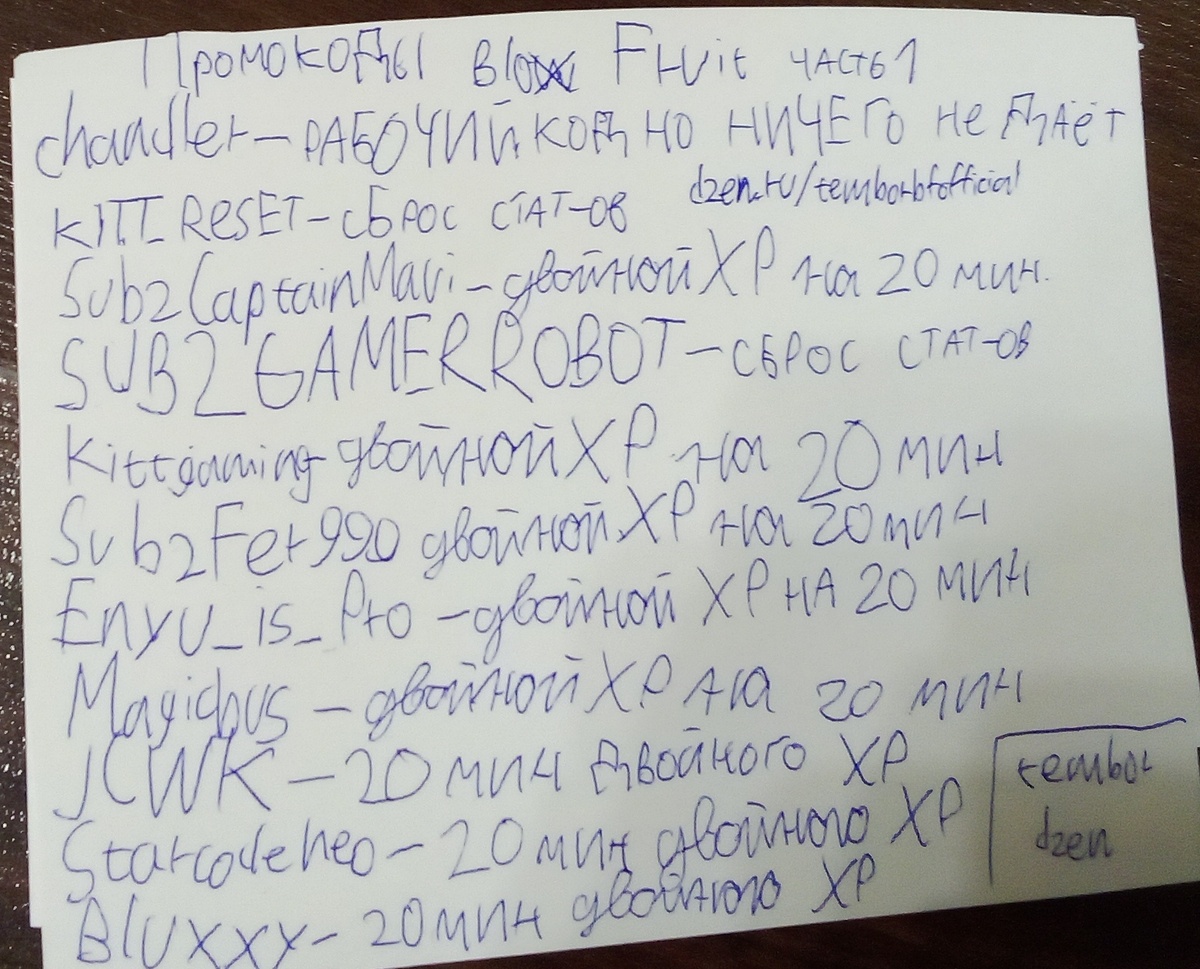 Промокоды Blox Fruit часть 1
chandler - РАБОЧИЙ КОД НО НИЧЕГО не ДАёТ
KITT RESET - СБРОС СТАТ-ОВ
dzen.ru/temborbfofficial
Sub2CaptainMaui - двойной XP на 20 мин.
SUB2GAMERROBOT - СБРОС СТАТ-ОВ
Kittgaming - двойной XP на 20 мин
Sub2Fer990 двойной XP на 20 мин
Enyu_is_Pro - двойной XP НА 20 мин
Magicbus - двойной XP на 20 мин
JCWK - 20 мин двойного XP
Starcodeheo - 20 мин двойного XP
Bluxxy - 20 мин двойного XP
tembor
dzen